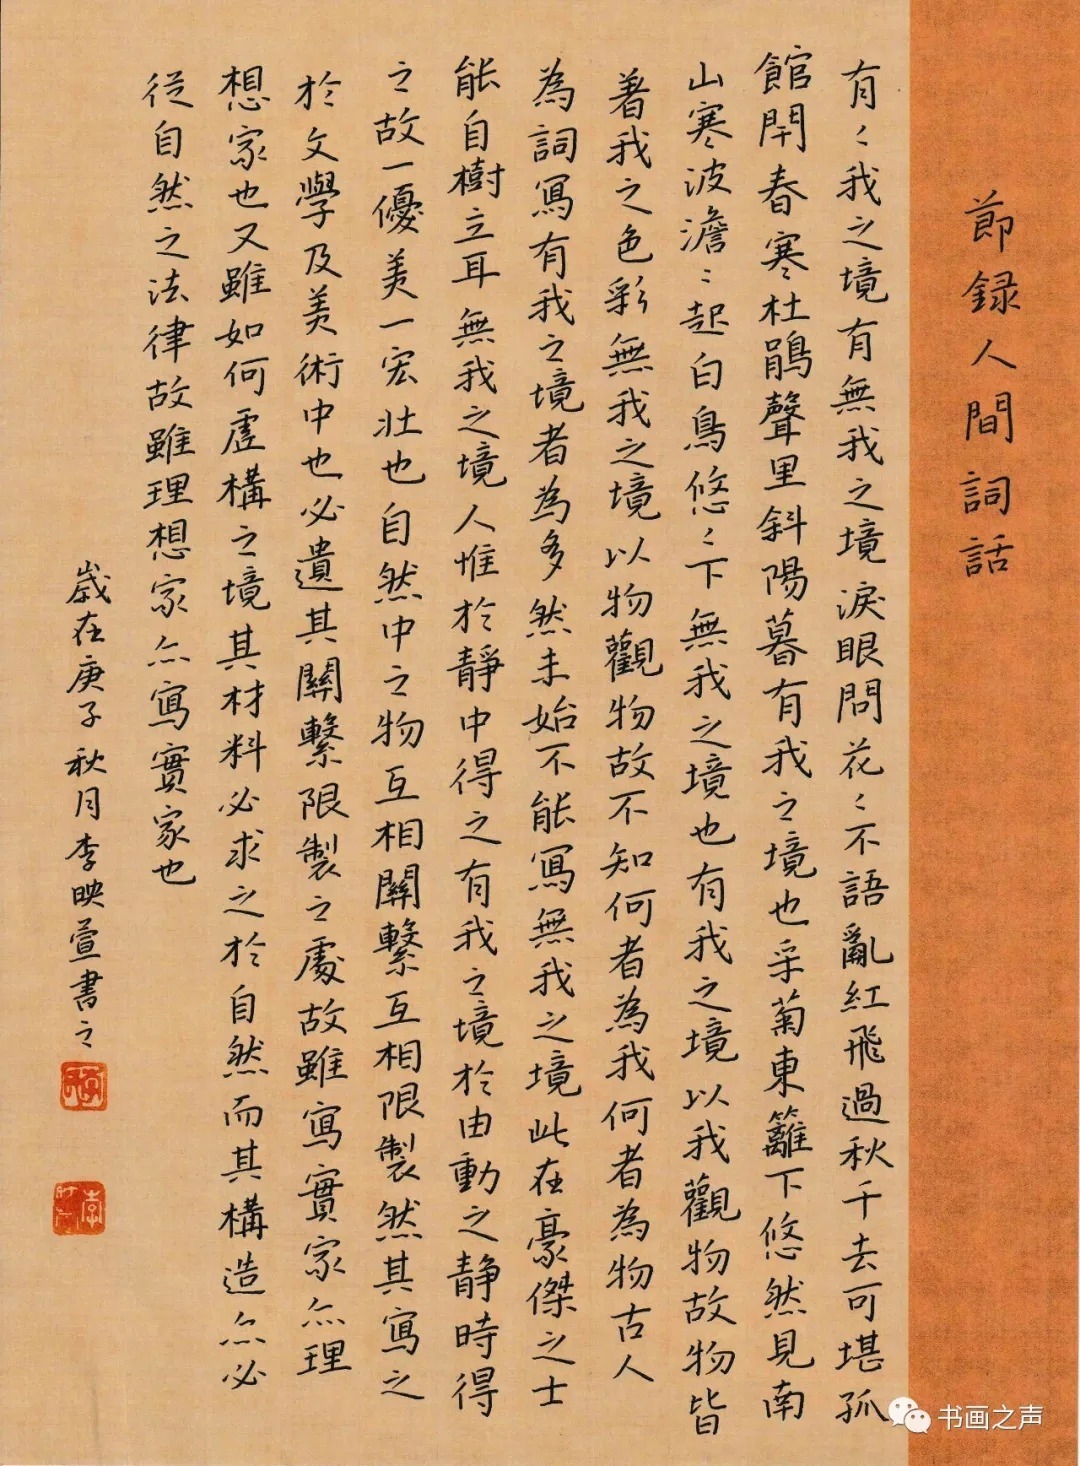 節録人間詞話
有〻我之境有無我之境淚眼問花〻不語亂紅飛過秋千去可堪孤
館閈春寒杜鵑聲里斜陽暮有我之境也采菊東籬下悠然見南
山寒波澹〻起白鳥悠〻下無我之境也有我之境以我觀物故物皆
著我之色彩無我之境以物觀物故不知何者為我何者為物古人
為詞寫有我之境者為多然未始不能寫無我之境此在豪傑之士
能自樹立耳無我之境人惟於靜中得之有我之境於由動之靜時得
之故一優美一宏壯也自然中之物互相關繫互相限製然其寫之
於文學及美術中也必遺其關繫限製之處故雖寫實家亦理
想家也又雖如何虛構之境其材料必求之於自然而其構造亦必
從自然之法律故雖理想家亦寫實家也
歲在庚子秋月李映萱書之
书画之声